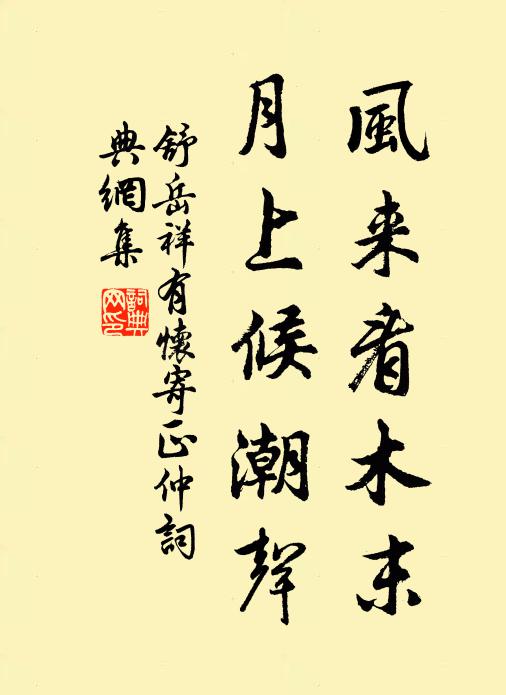 風来看木末
月上候潮聲
舒岳祥有懷寄正仲詞
典網集
詞典
网印